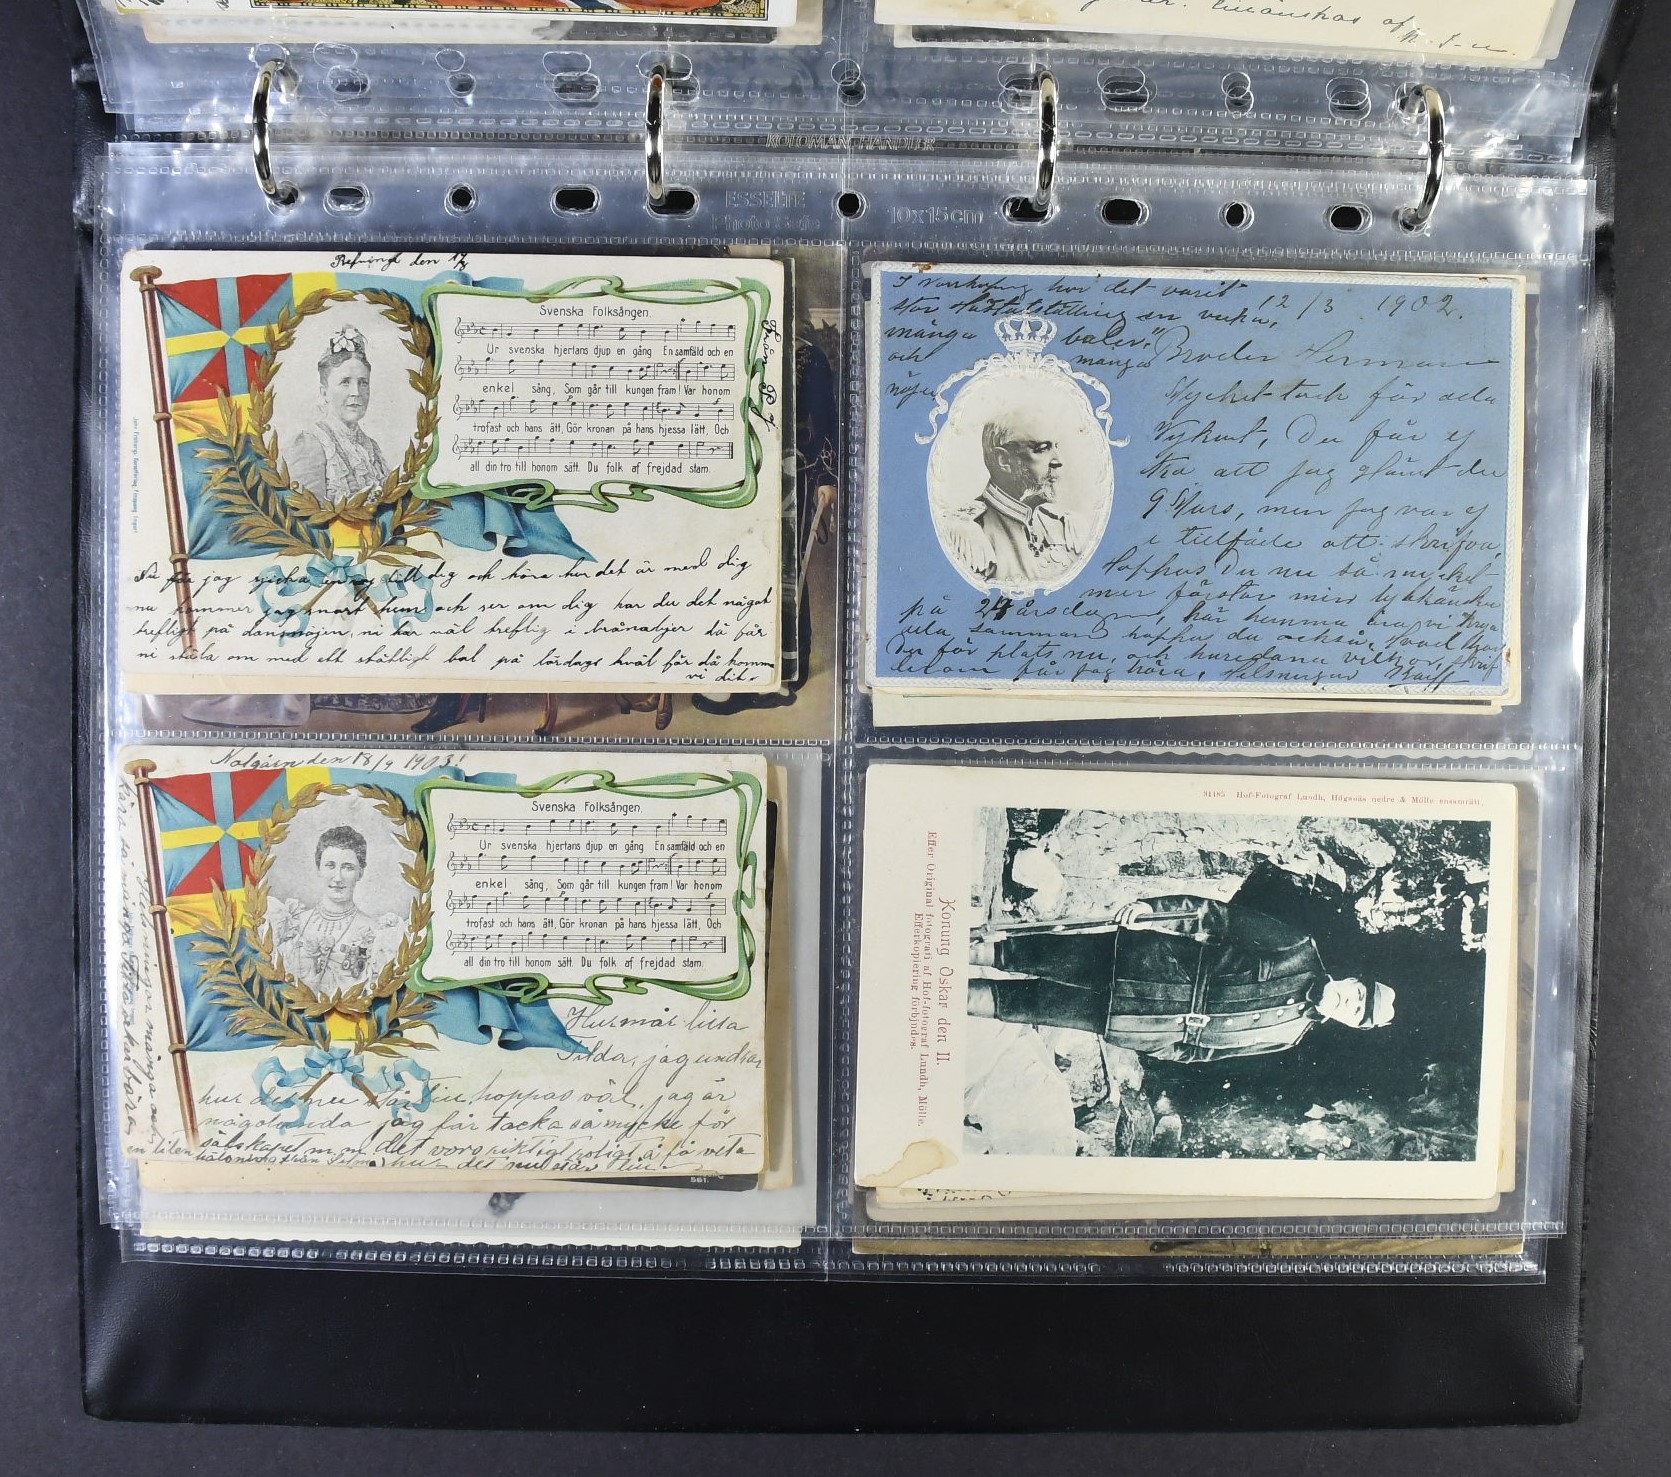 ar. Emanskas af
KOLOMAN HANDLER
ESSELTE
Photo Safe
10x15cm
den 17/8
Svenska Folksången.
Ur svenska hjertans djup en gång En samfäld och en
enkel sång, Som går till kungen fram! Var honom
trofast och hans ätt, Gör kronan på hans hjessa lätt, Och
all din tro till honom sätt. Du folk af frejdad stam.
Från
Nu får jag skicka till dig och höra hur det är med dig
nu kommer jag snart hem och ser om dig har du det något
trefligt på ni har väl trefligt i då får
ni ståta om med ett ståtligt bal på lördags kväll för då komma
vi dit.
I har det varit
stor en vecka,
många baler,
och många
nöjen
12/3 1902.
Broder Herman
Mycket tack för ditt
Vykort, Du får ej
tro att jag glömt din
9 Mars, men jag var ej
i tillfälle att skrifva,
Hoppas Du nu så mycket
mer förstår min lyckönskan
på 24 årsdagen, här hemma bra, vi
alla samman hoppas du också, hvad har
Du för plats nu, och huredana vilkor, skrif
derom får jag höra, Helsningar
den 18/9 1903!
Svenska Folksången.
Ur svenska hjertans djup en gång En samfäld och en
enkel sång, Som går till kungen fram! Var honom
trofast och hans ätt, Gör kronan på hans hjessa lätt, Och
all din tro till honom sätt. Du folk af frejdad stam.
Hur mår lilla
Tilda, jag undrar
hur det nu står till, hoppas väl, jag är
någorlunda jag får tacka så mycke för
sälskapet m m det vore riktigt roligt å få veta
en liten från Selma) hur det nu står till
561.
31185 Hof-Fotograf Lundh, Höganäs nedre & Mölle ensamrätt.
Konung Oskar den II.
Efter Original fotografi af Hof-fotograf Lundh, Mölle.
Efterkopiering förbjudes.